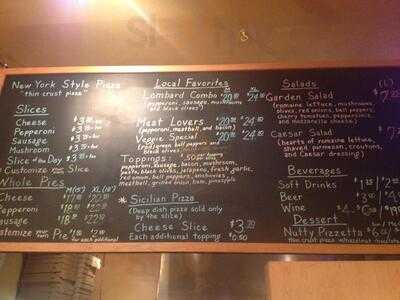 New York Style Pizza
"thin crust pizza"
Slices
Cheese $3
Pepperoni $3
Sausage $3
Mushroom $3
Slice of the Day $3
Customize your Slice
Whole Pies
M(16") XL(18")
Cheese
Pepperoni
Sausage
Customize your Pie $1 $2 for each additional
Local Favorites
Lombard Combo $20 $24
(pepperoni, sausage, mushrooms
and black olives)
Meat Lovers $20 $24
(pepperoni, meatball, and bacon)
Veggie Special $20 $24
(green bell peppers and
black olives)
Toppings
pepperoni, sausage, bacon, mushroom,
pesto, black olives, jalapeno, fresh garlic,
red onion, bell peppers, anchovies,
meatball, grilled onion, ham, pineapple
* Sicilian Pizza
(Deep dish pizza sold only
by the slice)
Cheese Slice $3.
Each additional topping $0.50
Salads (L)
Garden Salad $7
(romaine lettuce, mushrooms,
olives, red onions, bell peppers,
cherry tomatoes, pepperoncinis,
and mozzarella cheese)
Caesar Salad $7
(hearts of romaine lettuce,
shaved parmesan, croutons,
and Caesar dressing)
Beverages
Soft Drinks $1
Beer $3
Wine
Dessert
Nutty Pizzetta $6
thin crust pizza w/hazelnut